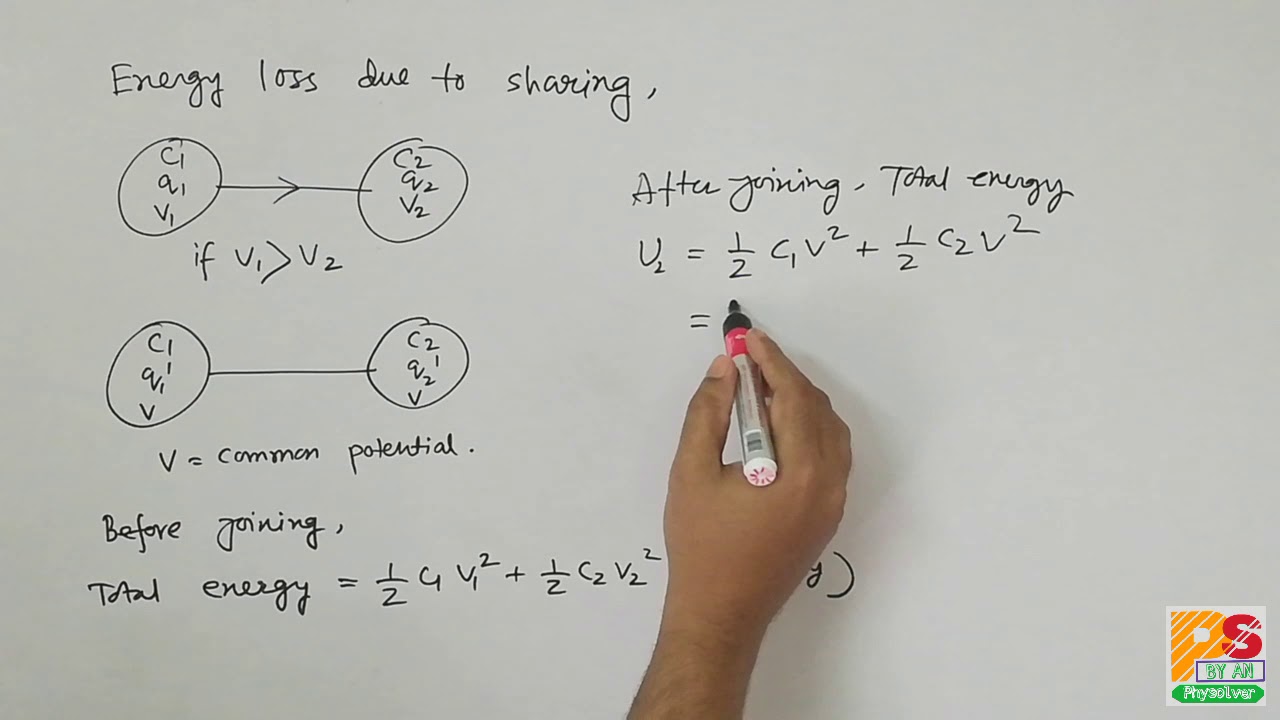 Energy loss due to sharing,
C₁
q₁
V₁
C₂
q₂
V₂
if V₁ > V₂
C₁
q₁'
V
C₂
q₂'
V
V = common potential.
Before joining,
Total energy = 1/2 C₁ V₁² + 1/2 C₂ V₂² y)
After joining, Total energy
U₂ = 1/2 C₁V² + 1/2 C₂V²
=
PS
BY AN
Physolver